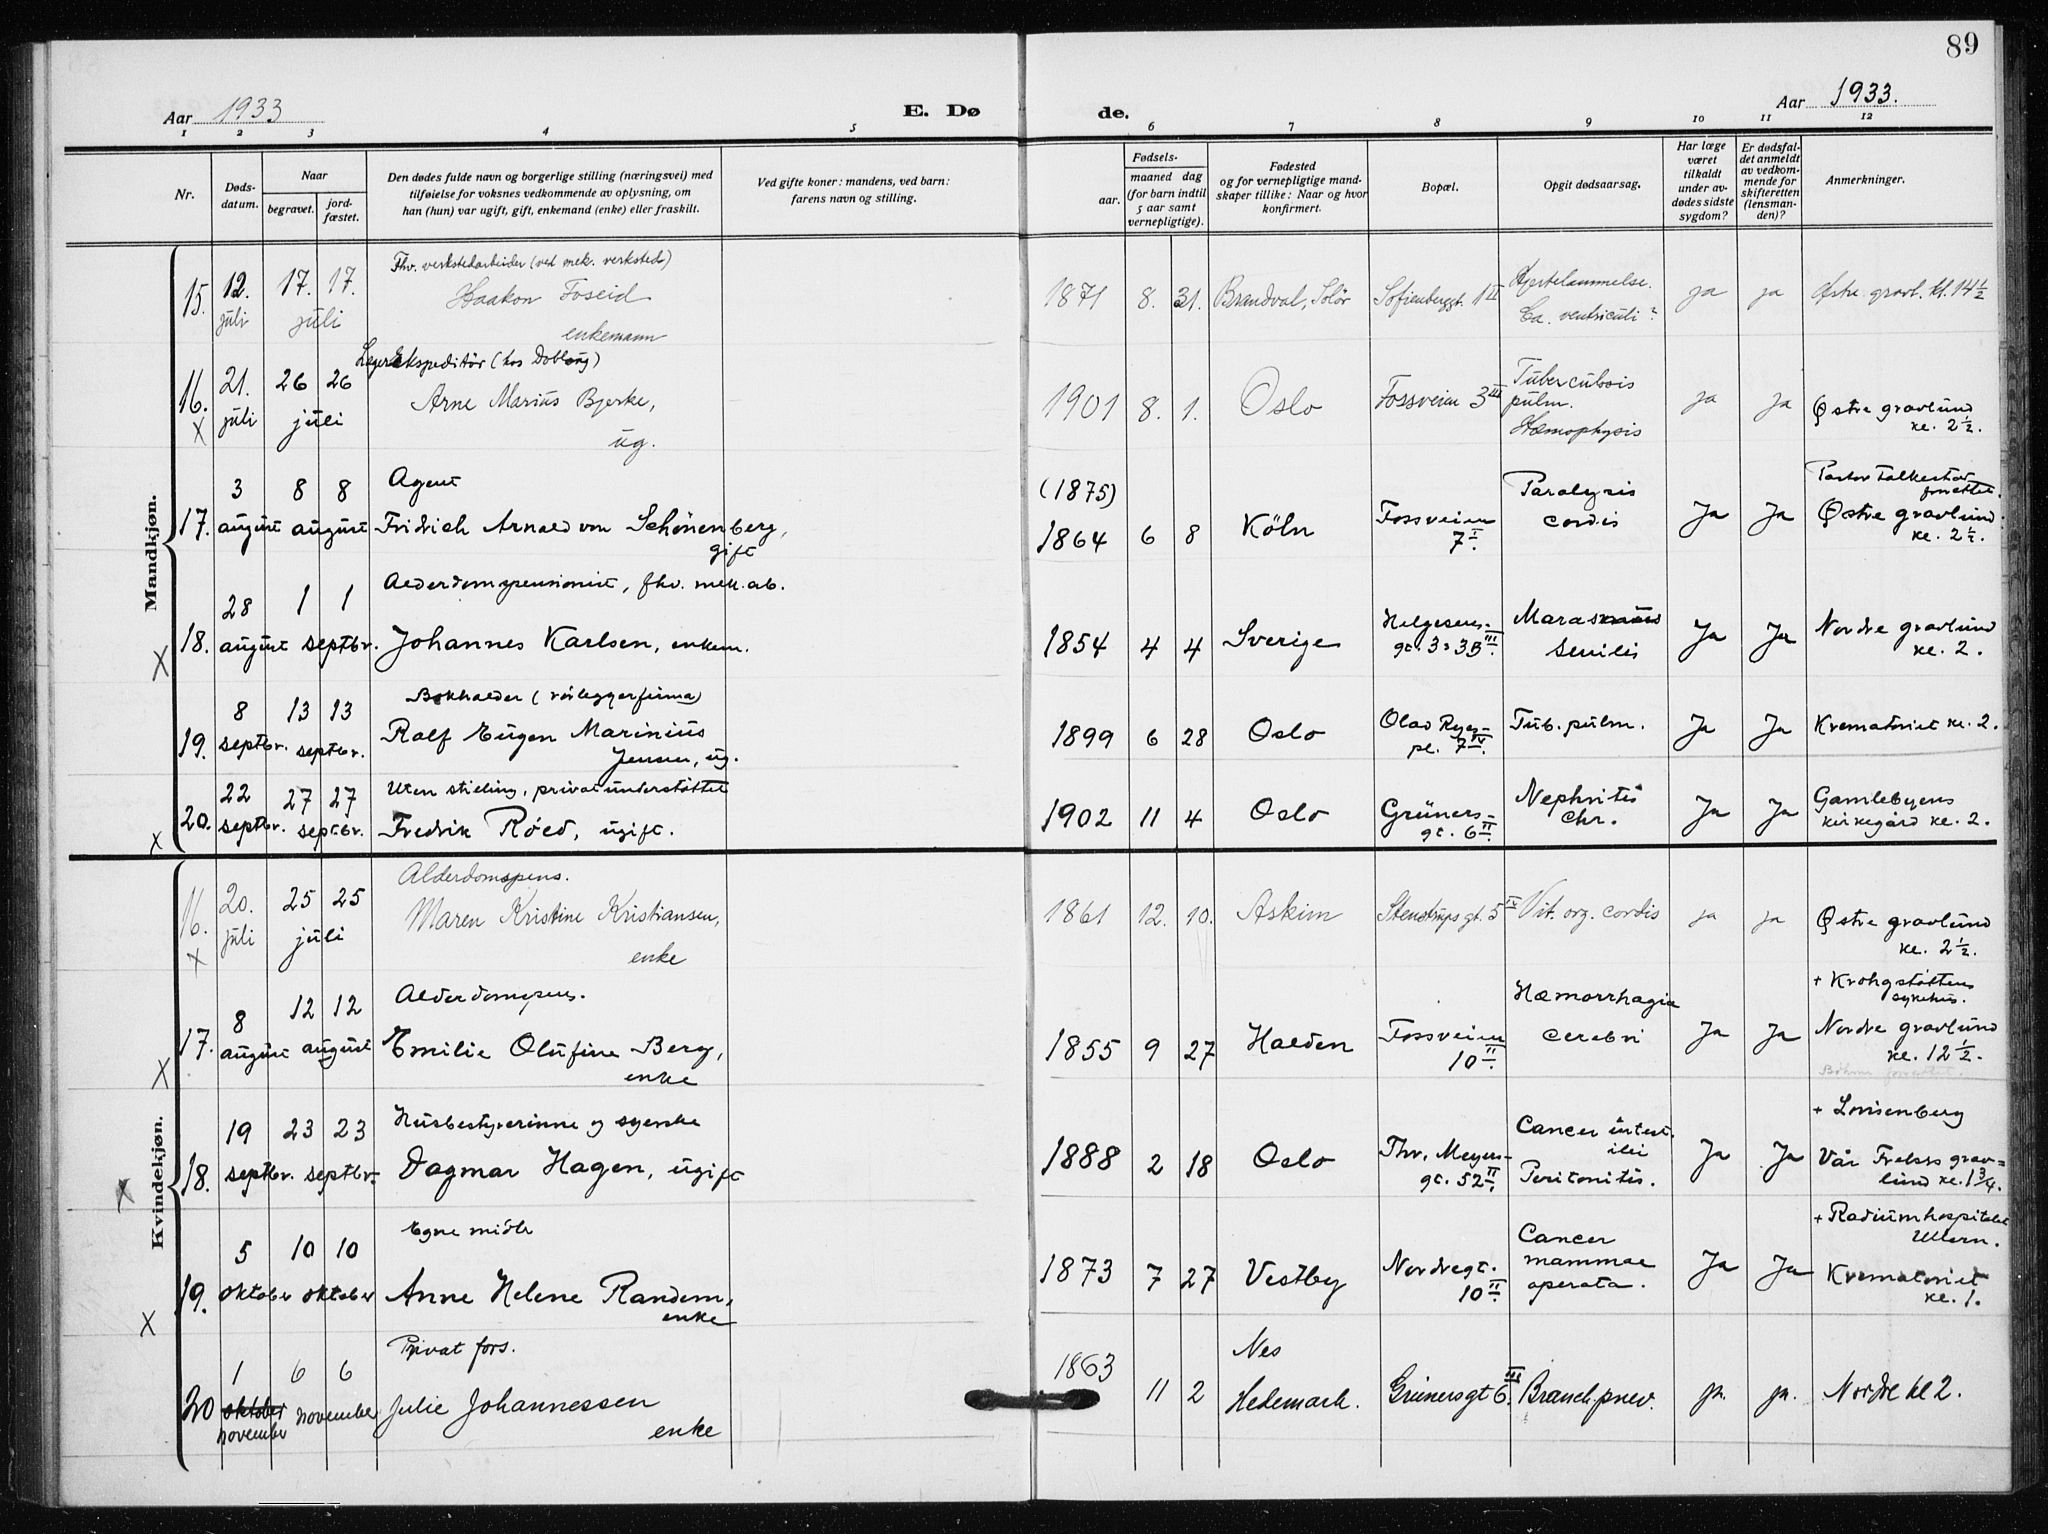 89
Aar 1933
E. Dø
de.
Aar 1933.
1 2 3 4 5 6 7 8 9 10 11 12
Nr.
Døds-
datum.
Naar
begravet.
jord-
fæstet.
Den dødes fulde navn og borgerlige stilling (næringsvei) med
tilføielse for voksnes vedkommende av oplysning, om
han (hun) var ugift, gift, enkemand (enke) eller fraskilt.
Ved gifte koner: mandens, ved barn:
farens navn og stilling.
Fødsels-
aar.
maaned dag
(for barn indtil
5 aar samt
vernepligtige).
Fødested
og for vernepligtige mand-
skaper tillike: Naar og hvor
konfirmert.
Bopæl.
Opgit dødsaarsag.
Har læge
været
tilkaldt
under av-
dødes sidste
sygdom?
Er dødsfal-
det anmeldt
av vedkom-
mende for
skifteretten
(lensman-
den)?
Anmerkninger.
Mandkjøn.
Fhv. verkstedarbeider (ved mek. verksted)
15. 12. 17. 17. Haakon Foseid 1871 8. 31. Brandval, Solør Sofienberggt. 1 II Hjertelammelse. ja ja Østre gravl. kl. 14 1/2
juli juli enkemann Ca. ventriculi?
Lagerekspeditør (hos Dobloug)
16. 21. 26 26 Arne Marius Bjerke, 1901 8. 1. Oslo Fossveien 3 III Tuberculosis ja ja Østre gravlund
X juli juli ug. pulm. kl. 2 1/2.
Hæmophysis
3 8 8 Agent (1875) Paralysis Pastor Falkestad
forrettet.
17. august august Fridrich Arnold von Schönenberg, 1864 6 8 Köln Fossveien cordis Ja Ja Østre gravlund
gift 7 I. kl. 2 1/2.
28 1 1 Alderdomspensionist, fhv. mek. arb.
18. august septbr. Johannes Karlsen, enkem. 1854 4 4 Sverige Helgesens- Marasmus Ja Ja Nordre gravlund
X gt. senilis kl. 2.
8 13 13 Bokholder (rørleggerfirma)
19. septbr. septbr. Rolf Eugen Marinius 1899 6 28 Oslo Olav Ryes- Tub. pulm. Ja Ja Krematoriet kl. 2.
Jensen, ug. pl. 7 IV.
22 27 27 Uten stilling, privat understøttet
20. septbr. septbr. Fredrik Röed, ugift. 1902 11 4 Oslo Grüners- Nephritis Ja Ja Gamlebyens
X gt. 6 II. chr. kirkegård kl. 2.
Kvindekjøn.
Alderdomspens.
16. 20. 25 25 Maren Kristine Kristiansen, 1861 12. 10. Askim Stenstrups gt. 5 IV Vit. org. cordis ja ja Østre gravlund
X juli juli enke kl. 2 1/2.
8 12 12 Alderdomspens. Hæmorrhagia + Krohgstøttens
sykehus.
17. august august Emilie Olufine Berg, 1855 9 27 Halden Fossveien cerebri Ja Ja Nordre gravlund
X enke 10 II. kl. 12 1/2.
forrettet.
19 23 23 Husbestyrerinne og syerske Cancer intest. + Lovisenberg
ilei
18. septbr. septbr. Dagmar Hagen, ugift 1888 2 18 Oslo Thv. Meyers- Peritonitis. Ja Ja Vår Frelsers grav-
X gt. 52 II. lund kl. 1 3/4.
5 10 10 Egne midler Cancer + Radiumhospitalet
Ullern.
19. oktober oktober Anne Helene Randem, 1873 7 27 Vestby Nordregt. mammae Ja Ja Krematoriet
X enke 10 II. operata. kl. 1.
1 6 6 Privat fors. 1863 Nes
20 oktober november Julie Johannessen 11 2 Hedemark. Grünersgt 6 III. Bronch. pnev. ja. ja. Nordre kl 2.
november enke